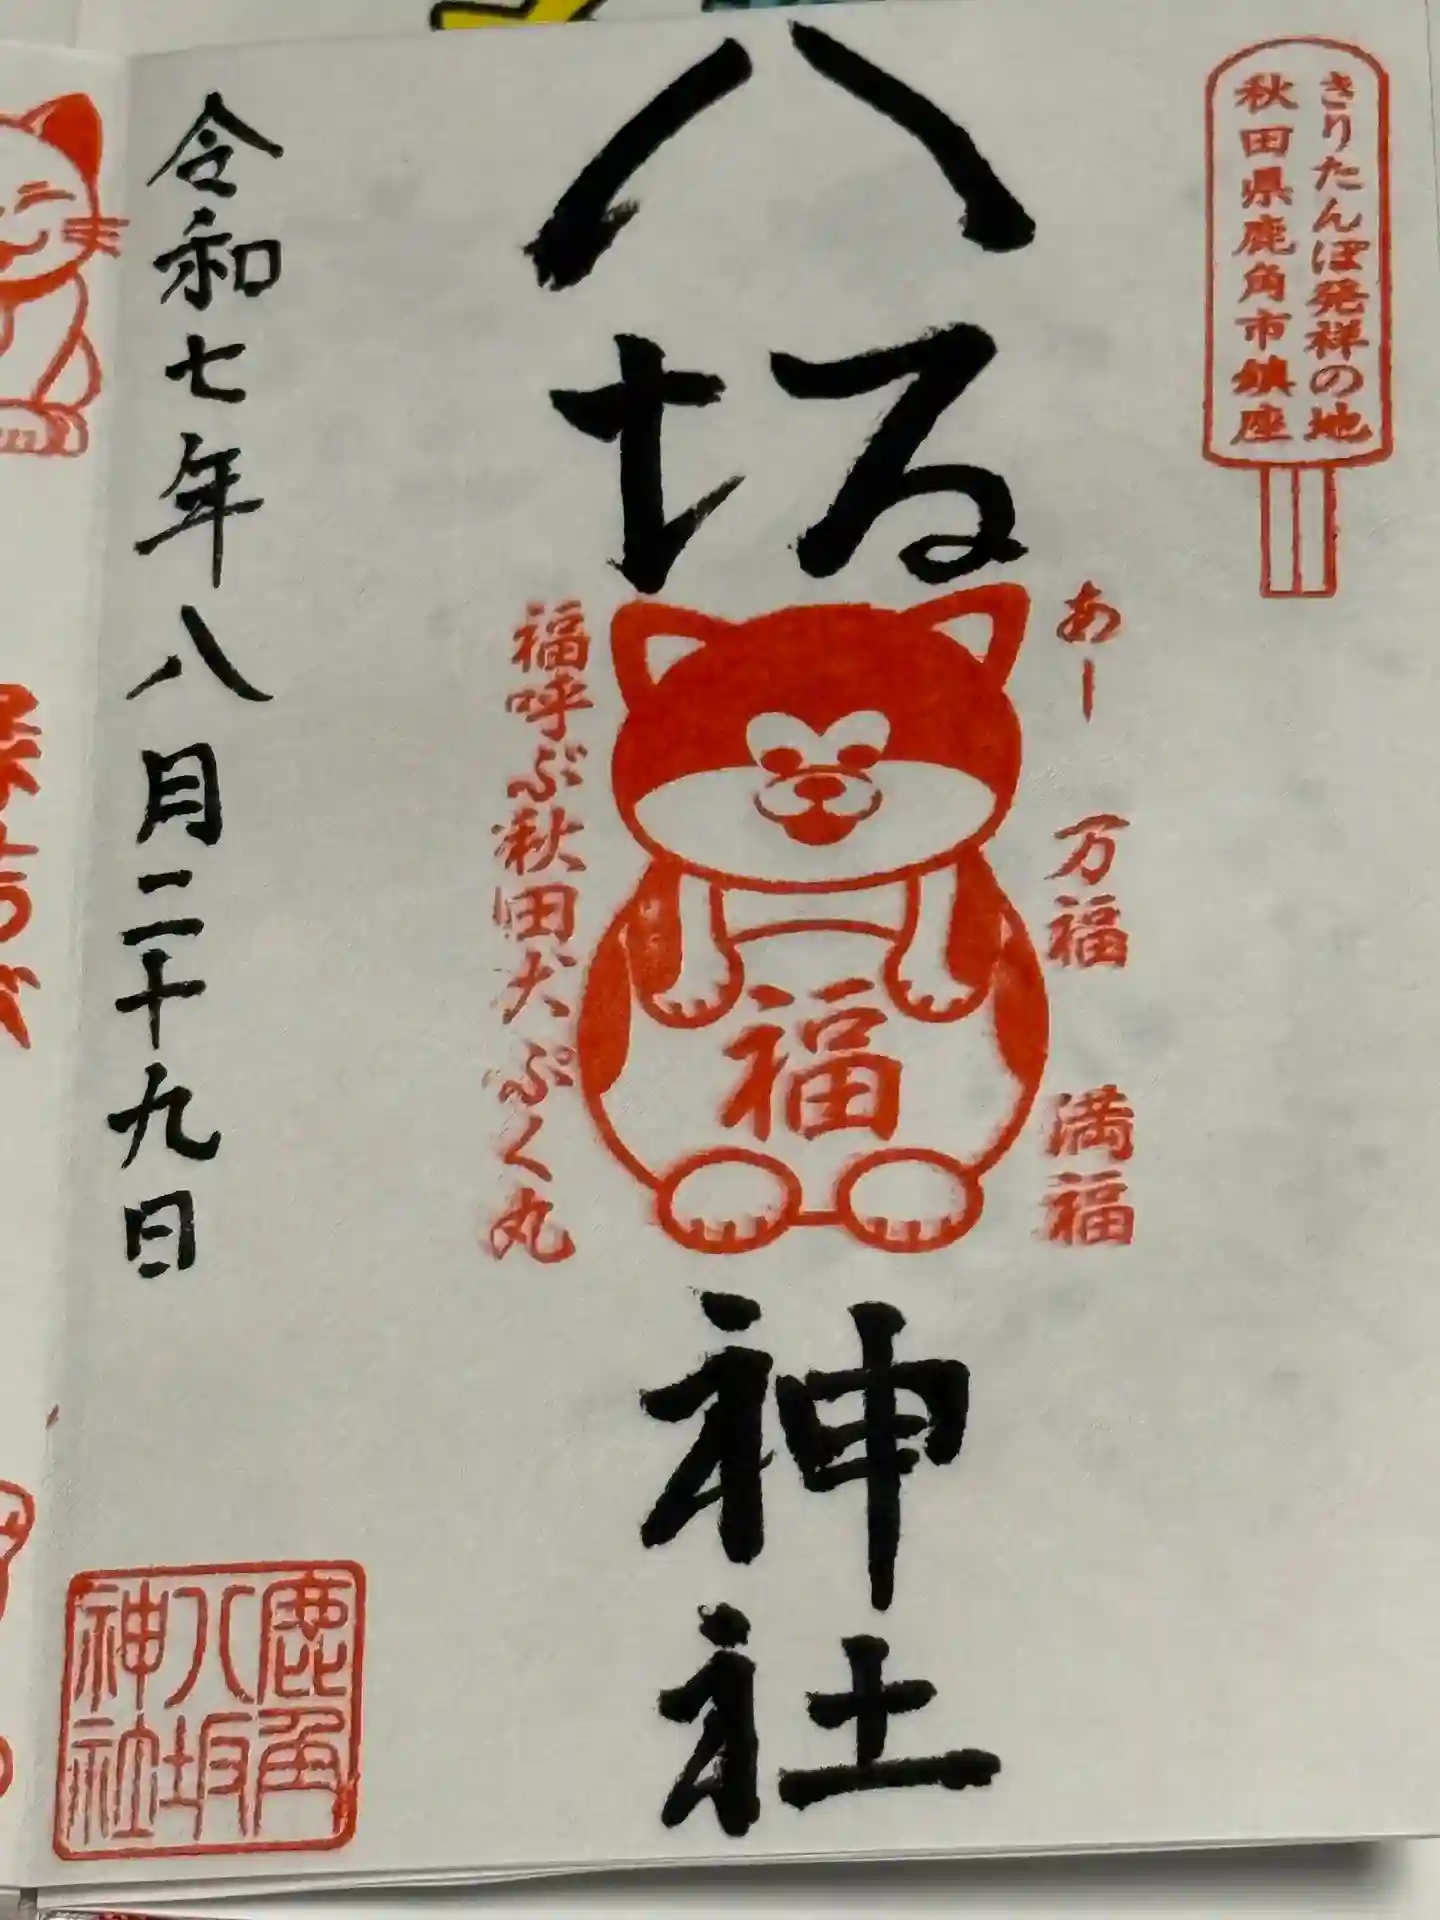 きりたんぽ発祥の地
秋田県鹿角市鎮座
八坂神社
あー 万福 満福
福
福呼ぶ秋田犬ぷく丸
令和七年八月二十九日
鹿角
八坂
神社